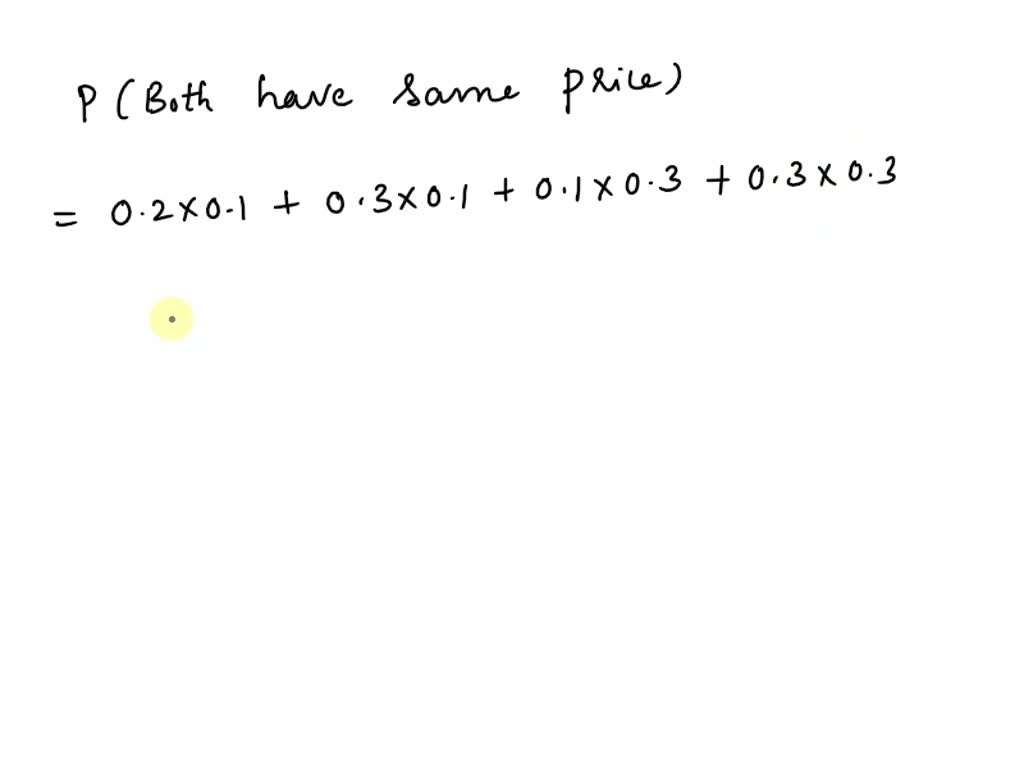 P (Both have same price)
= 0.2×0.1 + 0.3×0.1 + 0.1×0.3 + 0.3×0.3